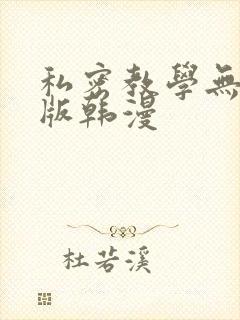 私密教學無
版韩漫
杜若溪